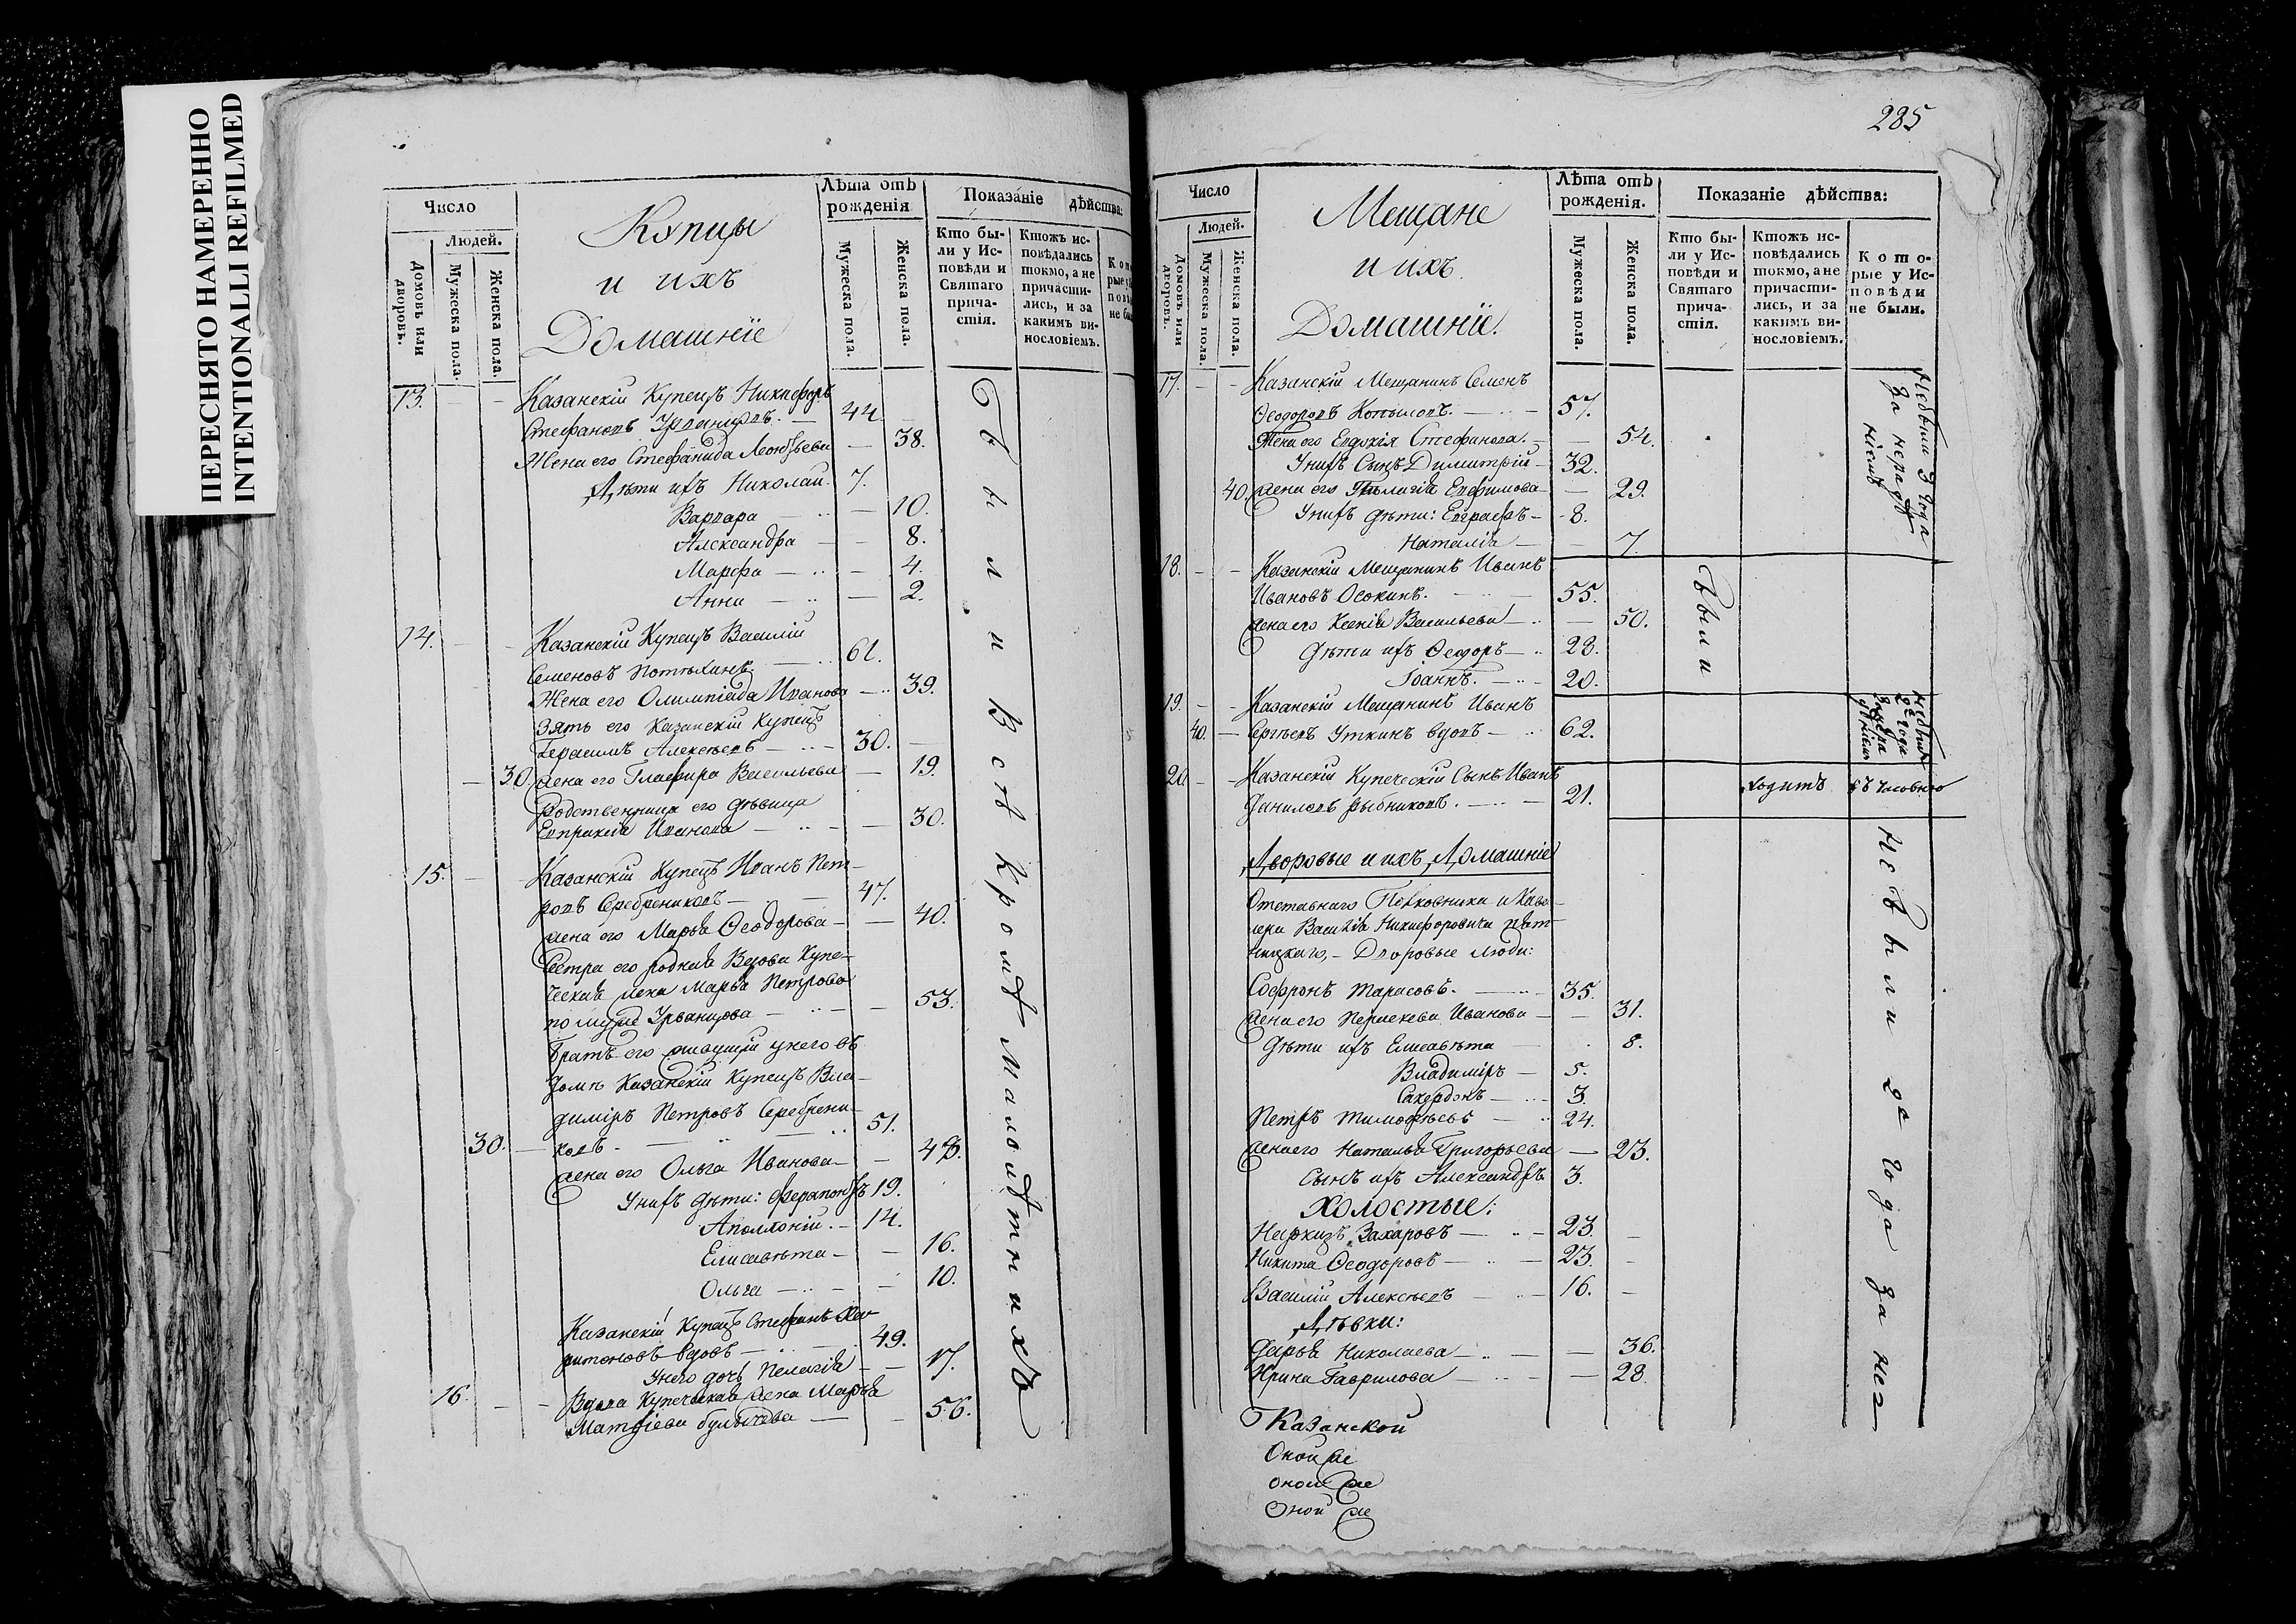 ПЕРЕСНЯТО НАМЕРЕННО
INTENTIONALLI REFILMED
Число
Людей.
Домовъ или дворовъ.
Мужеска пола.
Женска пола.
Купцы
и ихъ
Домашніе
Лѣта отъ рожденія
Мужеска пола.
Женска пола.
Показаніе дѣйства:
Кто бы-
ли у Ис-
повѣди и
Святаго
прича-
стія.
Ктожъ ис-
повѣдались
токмо, а не
причасти-
лись, и за
какимъ ви-
нословіемъ.
13. Казанскій Купецъ Никифоръ
Стефановъ Урванцовъ. 44
Жена его Стефанида Леонтьева 38.
Дѣти ихъ Николай 7.
Варвара 10.
Александра 8.
Марфа 4.
Анна 2.
14. Казанскій Купецъ Василій
Семеновъ Потѣхинъ. 61.
Жена его Олимпіада Иванова 39.
Зять его Казанскій Купецъ
Герасимъ Алексѣевъ 30.
30. жена его Глафира Васильева 19.
Родственница его дѣвица
Евпраксія Иванова 30.
15. Казанскій Купецъ Иванъ Пет-
ровъ Серебрениковъ 47.
жена его Марья Ѳеодорова 40.
Сестра его родная Вдова Купе-
ческая жена Марья Петрова
по мужѣ Урванцова 53.
Братъ его живущій у него въ
домѣ Казанскій Купецъ Вла-
диміръ Петровъ Серебрени-
30. ковъ 51.
жена его Ольга Иванова 48.
У нихъ дѣти: Ферапонтъ 19.
Аполлоній. 14.
Елисавѣта 16.
Ольга 10.
Казанскій Купецъ Стефанъ Хар-
итоновъ вдовъ 49.
У него дочь Пелагія 17.
16. Вдова Купеческая жена Марья
Матфіева Булычева 56.
Были Всѣ Кромѣ Малолѣтнихъ
285
Число
Людей.
Домовъ или дворовъ.
Мужеска пола.
Женска пола.
Мещане
и ихъ
Домашніе.
Лѣта отъ рожденія.
Мужеска пола.
Женска пола.
Показаніе дѣйства:
Кто бы-
ли у Ис-
повѣди и
Святаго
прича-
стія.
Ктожъ ис-
повѣдались
токмо, а не
причасти-
лись, и за
какимъ ви-
нословіемъ.
Кото-
рые у Ис-
повѣди
не были.
17. Казанскій Мещанинъ Семенъ
Ѳеодоровъ Копыловъ. 57.
Жена его Евдокія Стефанова. 54.
У нихъ Сынъ Димитрій 32.
40. жена его Пелагія Евфимова 29.
У нихъ дѣти: Евграфъ 8.
Наталія 7.
Небыли 3 года
за нерадѣ
ніемъ
18. Казанскій Мещанинъ Иванъ
Ивановъ Осокинъ. 55.
жена его Ксенія Васильева 50.
Дѣти ихъ Ѳедоръ 23.
Іоаннъ. 20.
Были
19. Казанскій Мещанинъ Иванъ
40. Сергѣевъ Уткинъ вдовъ 62.
20. Казанскій Купеческій Сынъ Иванъ
Даниловъ Рыбниковъ. 21.
ходитъ въ часовню
Дворовые и ихъ Домашніе
Отставнаго Полковника и Кава-
лера Василія Никифоровича
Дворовые люди:
Софронъ Тарасовъ. 35.
жена его Пелагея Иванова 31.
Дѣти ихъ Елисавѣта 8.
Владиміръ 5.
Сакердонъ 3.
Петръ Тимофѣевъ 24.
жена его Наталья Григорьева 23.
Сынъ ихъ Александръ 3.
Холостые:
Наркизъ Захаровъ 23.
Никита Ѳеодоровъ 23.
Василій Алексѣевъ 16.
Дѣвки:
Дарья Николаева 36.
Ирина Гаврилова 28.
Небыли 2 года за
Казанской
Оной же
оной же
Оной же